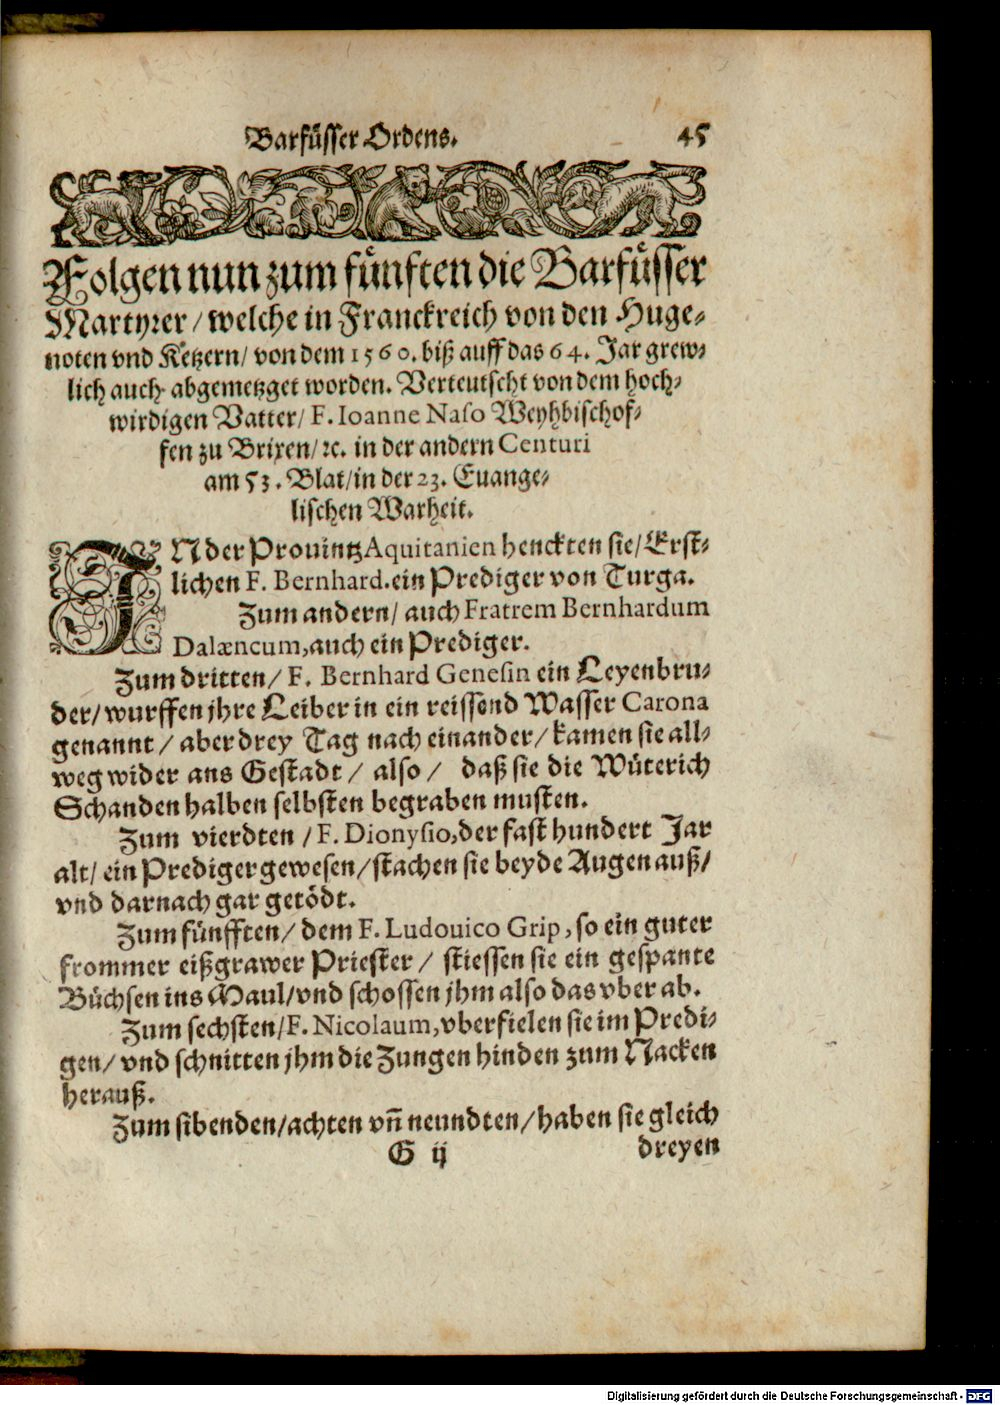 Barfüsser Ordens. 45
Folgen nun zum fünften die Barfüsser
Martyrer / welche in Franckreich von den Huge-
noten vnd Ketzern / von dem 1560. biß auff das 64. Jar grew-
lich auch abgemetzget worden. Verteutscht von dem hoch-
wirdigen Vatter / F. Ioanne Naso Weyhbischof-
fen zu Brixen / ꝛc. in der andern Centuri
am 53. Blat / in der 23. Euange-
lischen Warheit.
IN der Prouintz Aquitanien henckten sie / Erst-
lichen F. Bernhard. ein Prediger von Turga.
Zum andern / auch Fratrem Bernhardum
Dalæncum, auch ein Prediger.
Zum dritten / F. Bernhard Genesin ein Leyenbru-
der / wurffen jhre Leiber in ein reissend Wasser Carona
genannt / aber drey Tag nach einander / kamen sie all-
weg wider ans Gestadt / also / daß sie die Wüterich
Schanden halben selbsten begraben musten.
Zum vierdten / F. Dionysio, der fast hundert Jar
alt / ein Prediger gewesen / stachen sie beyde Augen auß /
vnd darnach gar getödt.
Zum fünfften / dem F. Ludouico Grip, so ein guter
frommer eißgrawer Priester / stiessen sie ein gespante
Büchsen ins Maul / vnd schossen jhm also das vber ab.
Zum sechsten / F. Nicolaum, vberfielen sie im Predi-
gen / vnd schnitten jhm die Zungen hinden zum Nacken
herauß.
Zum sibenden / achten vñ neundten / haben sie gleich
G ij dreyen
Digitalisierung gefördert durch die Deutsche Forschungsgemeinschaft - DFG